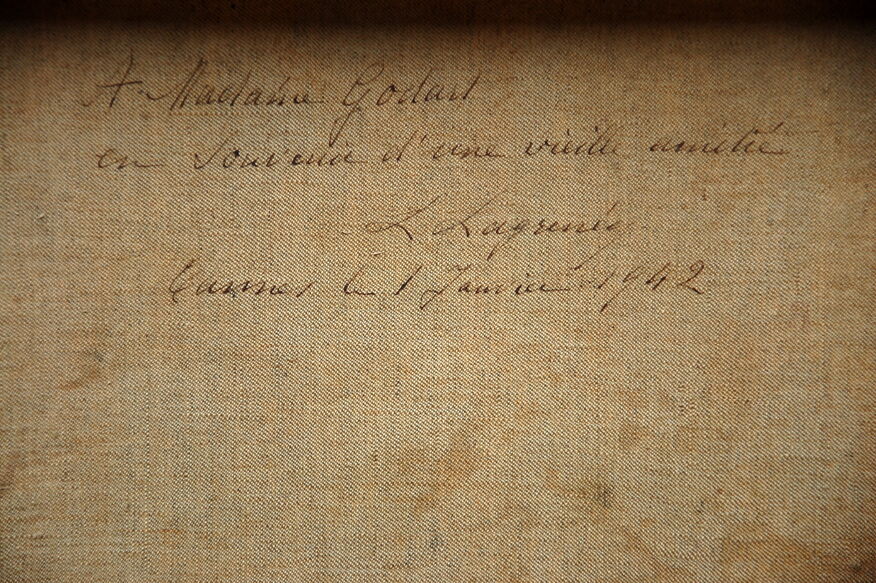 A Madame Godart
en souvenir d'une vieille amitié
L Lagrenée
Cannes le 1 Janvier 1942